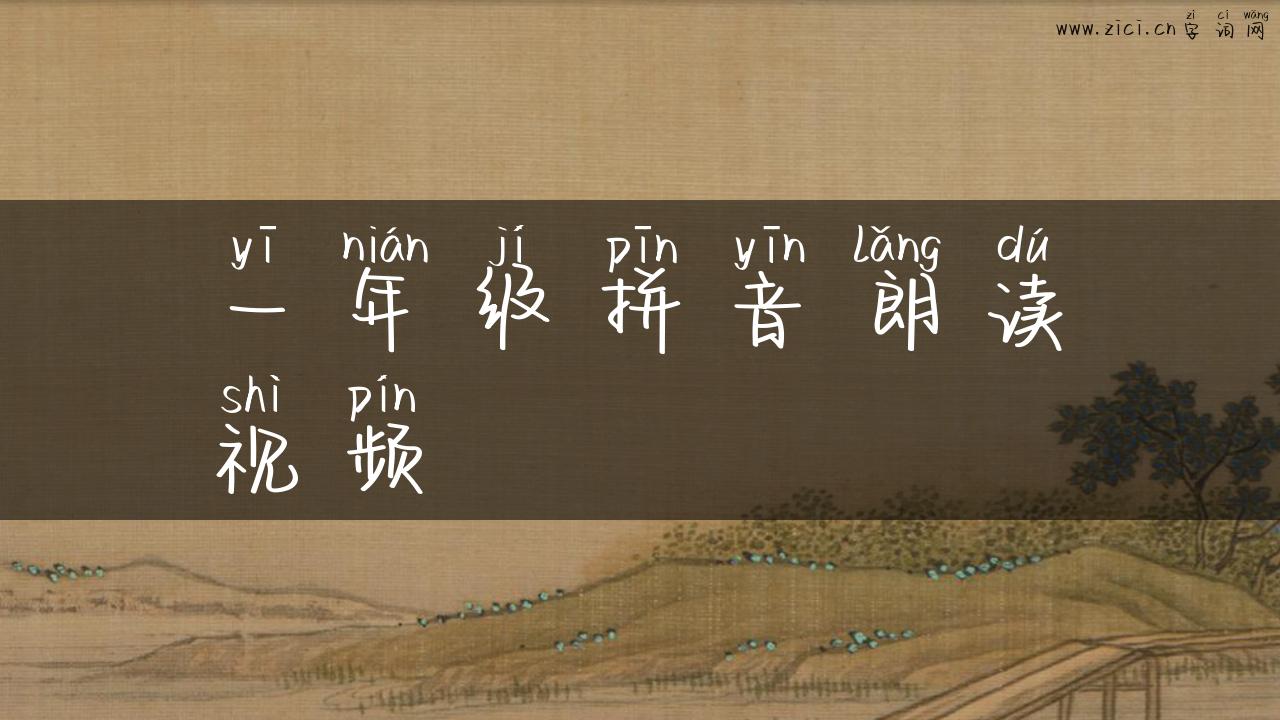 zì cí wǎng
www.zici.cn 字词网
yī nián jí pīn yīn lǎng dú
一年级拼音朗读
shì pín
视频